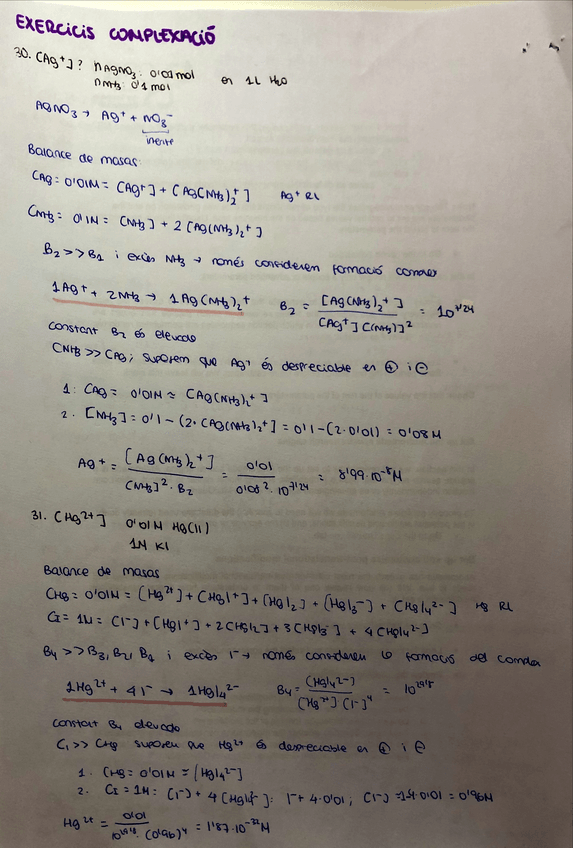 EXERCICIS COMPLEXACIÓ
30. [Ag⁺]? nAgNO₃: 0'01mol
nNH₃: 0'1 mol en 1L H₂O
AgNO₃ → Ag⁺ + NO₃⁻
inerte
Balance de masas:
CAg = 0'01M = [Ag⁺] + [Ag(NH₃)₂⁺] Ag⁺ RL
CNH₃ = 0'1M = [NH₃] + 2 [Ag(NH₃)₂⁺]
B₂ >> B₁ i excés NH₃ → només considerem formació complex
1Ag⁺ + 2NH₃ → 1Ag(NH₃)₂⁺ B₂ = [Ag(NH₃)₂⁺] / [Ag⁺][(NH₃)]² = 10⁷'²⁴
Constant B₂ és elevada
CNH₃ >> CAg; suposem que Ag⁺ és despreciable en ⊕ i ⊖
1: CAg = 0'01M ≈ [Ag(NH₃)₂⁺]
2. [NH₃] = 0'1 - (2·[Ag(NH₃)₂⁺] = 0'1 - (2·0'01) = 0'08M
Ag⁺ = [Ag(NH₃)₂⁺] / [NH₃]²·B₂ = 0'01 / 0'08²·10⁷'²⁴ = 8'99·10⁻⁸M
31. [Hg²⁺] 0'01M Hg(II)
1M KI
Balance de masas
CHg = 0'01M = [Hg²⁺] + [HgI⁺] + [HgI₂] + [HgI₃⁻] + [HgI₄²⁻] Hg RL
CI = 1M = [I⁻] + [HgI⁺] + 2[HgI₂] + 3[HgI₃⁻] + 4[HgI₄²⁻]
B₄ >> B₃, B₂, B₁ i excés I⁻ → només considerem la formació del complex
1Hg²⁺ + 4I⁻ → 1HgI₄²⁻ B₄ = [HgI₄²⁻] / [Hg²⁺][I⁻]⁴ = 10²⁹'⁸
Constant B₄ elevada
CI >> CHg suposem que Hg²⁺ és despreciable en ⊕ i ⊖
1. CHg = 0'01M = [HgI₄²⁻]
2. CI = 1M = [I⁻] + 4[HgI₄²⁻]: I⁻ + 4·0'01; [I⁻] = 1-4·0'01 = 0'96M
Hg²⁺ = 0'01 / 10²⁹'⁸·(0'96)⁴ = 1'87·10⁻³²M